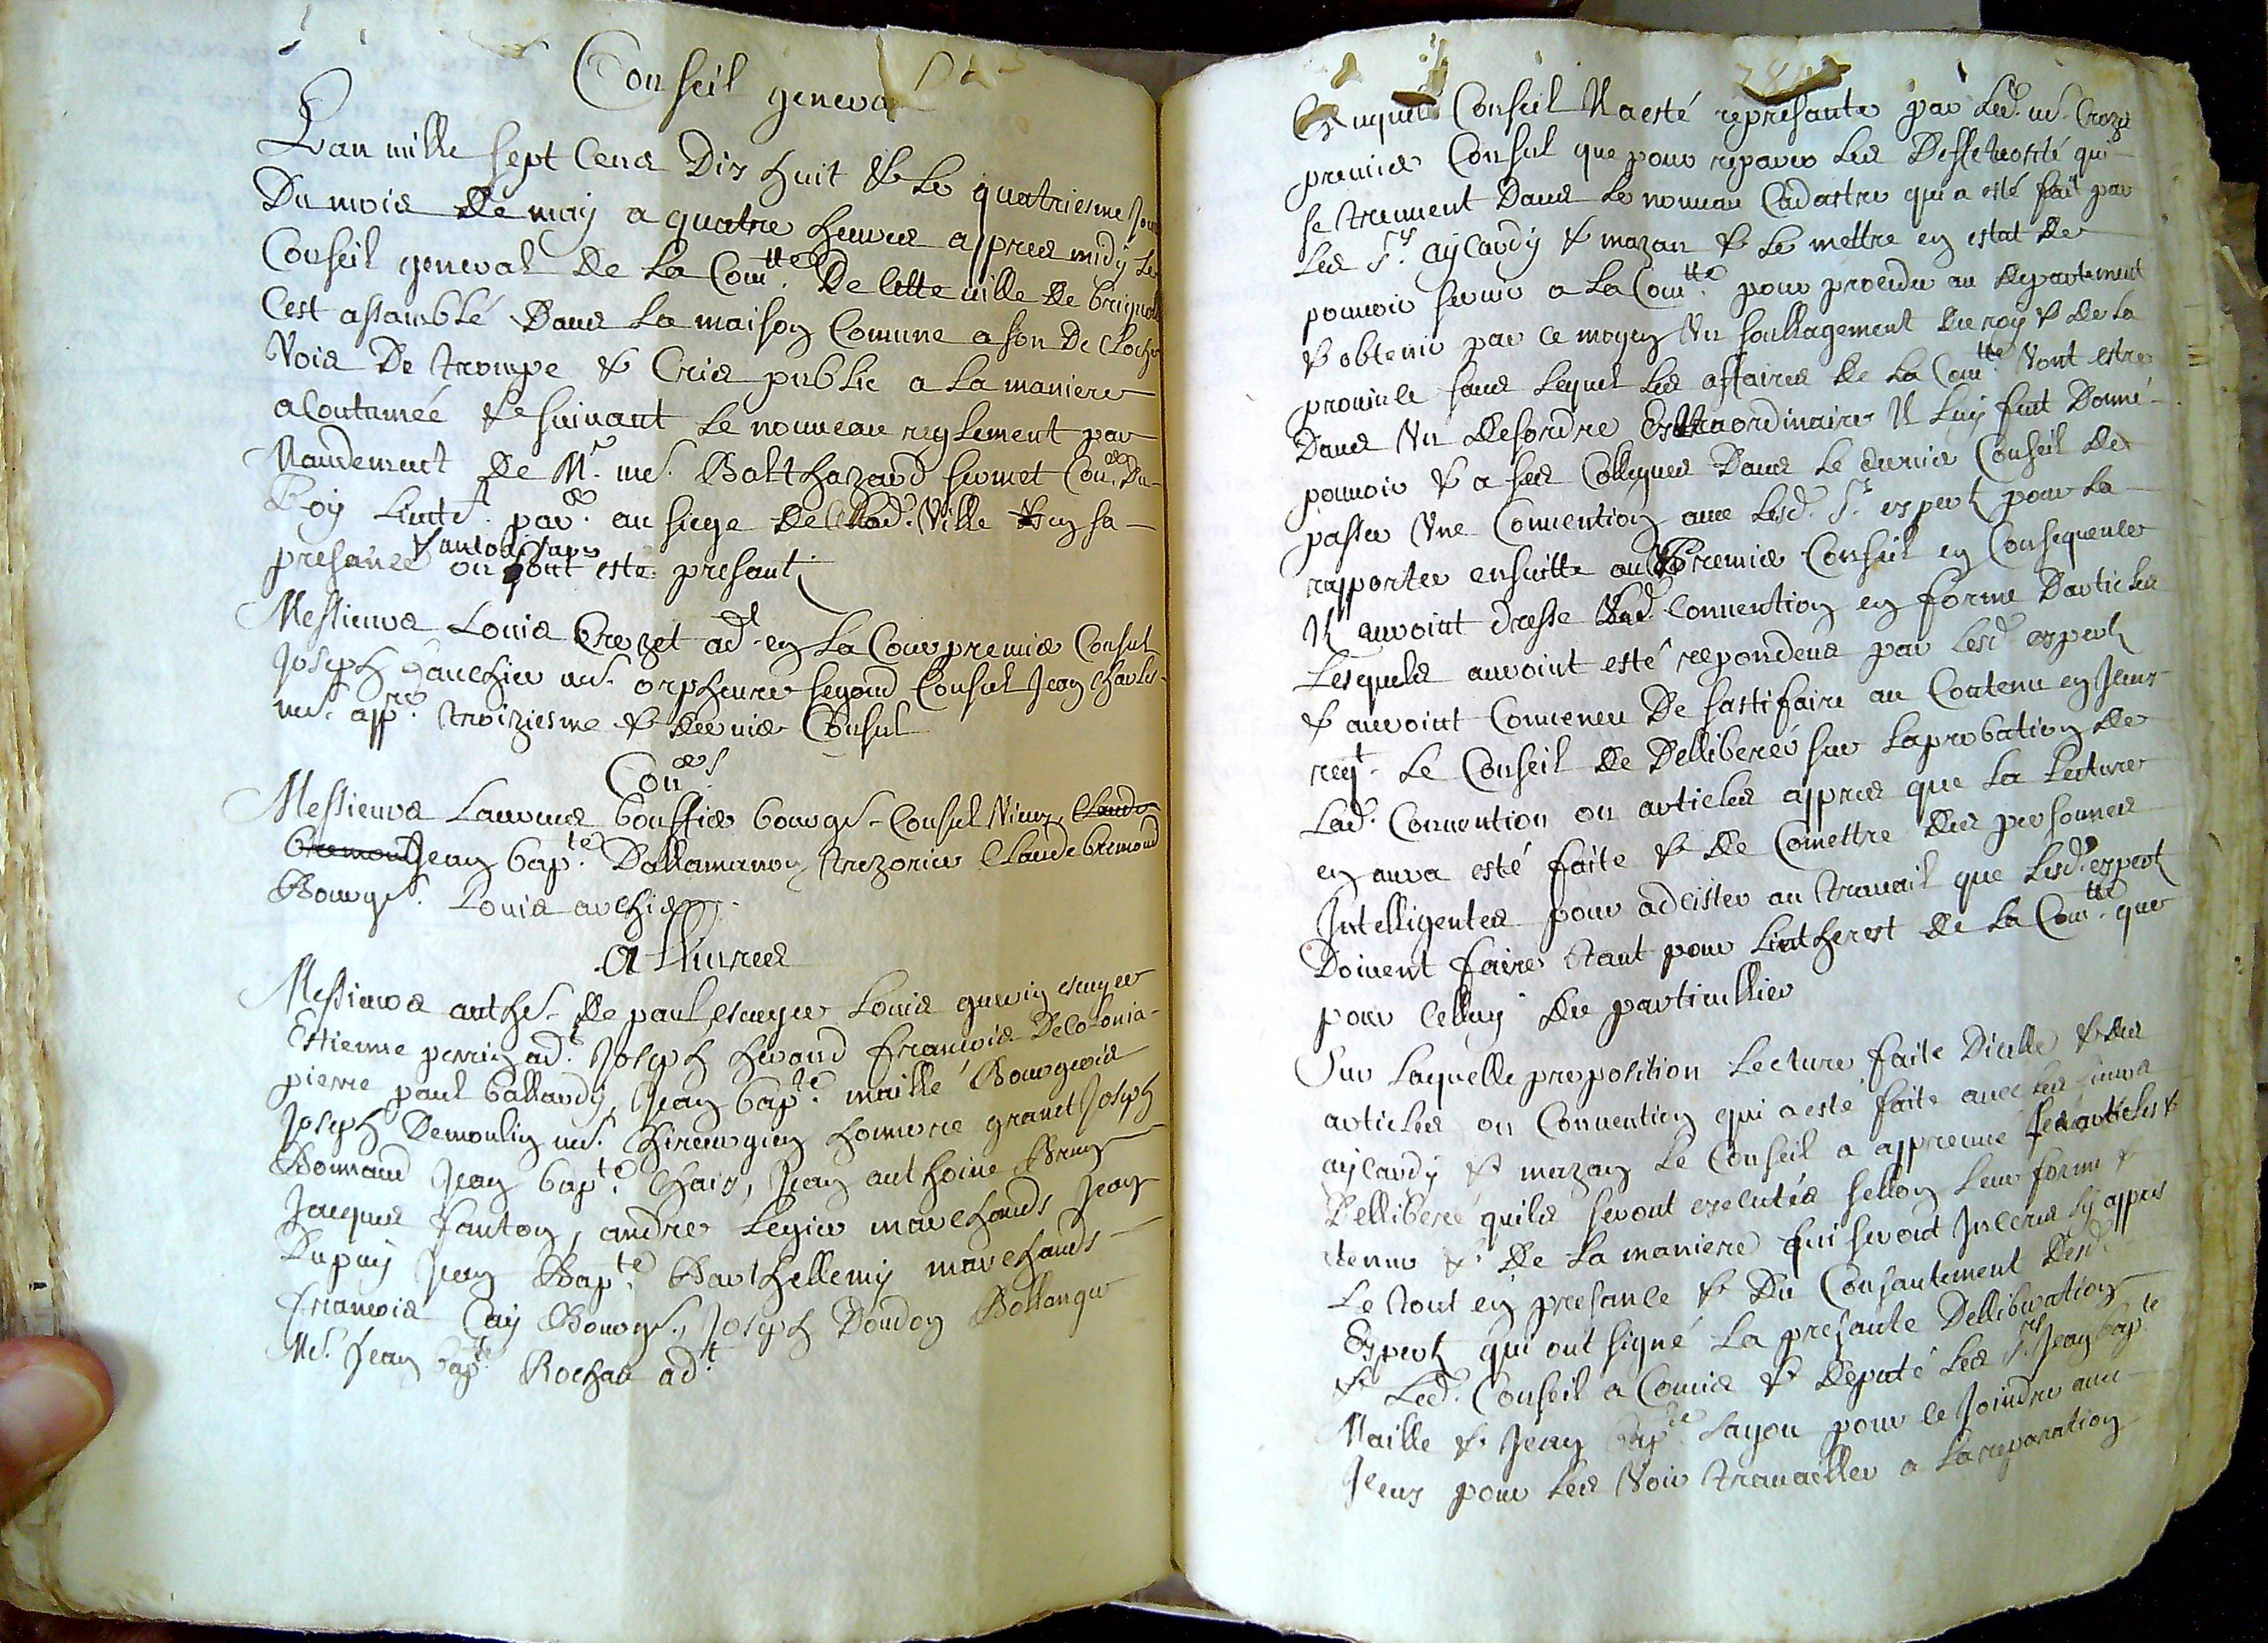 Conseil general
Lan mille sept cens dix huit & le quatriesme Jour
du mois de may a quatre heures appres midy le
Conseil general de la Comtte. de cette ville de brignolle
cest assamblé dans la maison Comune a son de cloche
voix de trompe & Cris public a la maniere
acoutumée & suivant le nouveau reglement par
Mandement de Mr. me. Balthazard fromet Coner. du
Roy Lieutt. par er. au siege de lad. Ville & en sa
presance & autorisaon ou sont esté presant
Messieurs Louis Crozet adt. en la Cour premier Consul
Joseph gauchier me. orpheure segond Consul Jean Charles
me. appre. troiziesme & dernier Consul
Coners.
Messieurs Laurens bouffier bourgs. Consul vieux Claude
bremond Jean bapte. Dallamanon trezorier Claude bremond
Bourgs. Louis archier
Adhuires
Messieurs anthe. de paul, escuyer Louis guerin escuyer
Estienne perrin adt. Joseph heraud francois Decolonia
pierre paul ballardy, Jean bapte. maille Bourgeois
Joseph Demoulin me. Chirurgien honnoré granet Joseph
Bonnaud Jean bapte. Chaix, Jean anthoine Brun
Jacques fanton, andre Legier marchands Jean
Dupuy Jean Bapte. Barthellemy marchands
francois Cay Bourgs., Joseph Doudon Bollanger
Me. Jean bapte. Rochas adt.
Auquel Conseil Il a esté represante par led. me. Crozet
premier Consul que pour reparer les deffetuosité qui
se treuvent dans le nouveau Cadastre qui a esté fait par
les Srs. aycardy & mazan & le mettre en estat de
pouvoir servir a la Comtte. pour proceder au departement
& obtenir par ce moyen un soullagement du roy & de la
province sans lequel les affaires de la Comtte. vont estre
dans un desordre Extraordinaire Il luy fut donné
pouvoir & a ses Collegues dans le dernier Conseil de
passer une Convention avec lesd. Srs. expert pour la
rapporter ensuitte au premier Conseil en Consequence
Il auroint dresse lad. Convention en forme darticles
Lesquels auroint esté repondeus par lesd. expert
& auroint Conveneu de sastifaire au Contenu en Jceux
reqt. le Conseil de delliberér sur laprobation de
lad. Convention ou articles appres que la lecture
en aura esté faite & de Comettre des personnes
Intelligentes pour adcister au travail que lesd. expert
doivent faire tant pour lintherest de la Comtte. que
pour celluy du particullier
Sur laquelle proposition lecture faite dicelle & des
articles ou Convention qui a esté faite avec les sieurs
aycardy & mazan le Conseil a appreuvé ses articles &
delliberé quils seront executés sellon leur forme &
tenur & de la maniere qui seront Jnserés sy appres
le tout en presance & du Consantement desd.
Expert qui ont signé la presante delliberation
& led. Conseil a Comis & deputé les Srs. Jean bapte.
Maille & Jean bapte. Layon pour ce Joindre avec
Jceux pour les voir travailler a la reparation